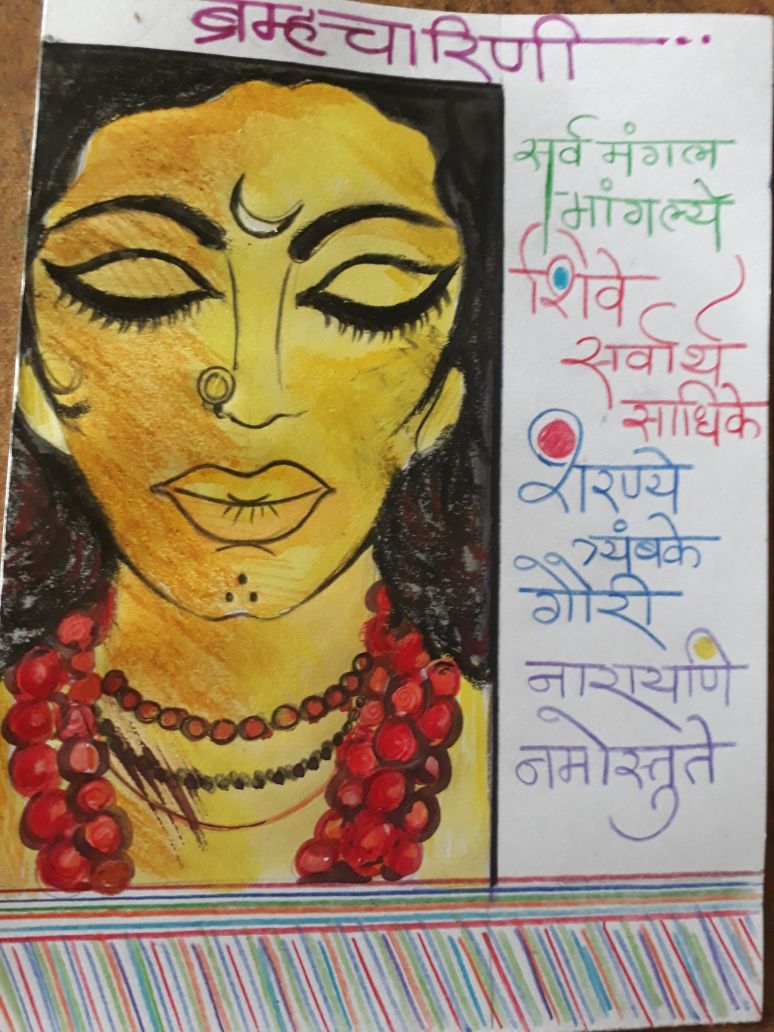 ब्रम्हचारिणी ...
सर्व मंगल
मांगल्ये
शिवे
सर्वार्थ
साधिके
शरण्ये
त्र्यंबके
गौरी
नारायणि
नमोस्तुते